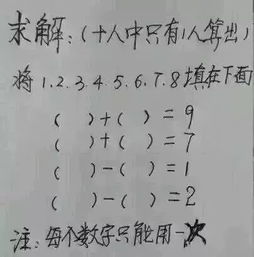 求解:(十人中只有1人算出)
将1.2.3.4.5.6.7.8填在下面
( )+( )=9
( )+( )=7
( )-( )=1
( )-( )=2
注:每个数字只能用一次